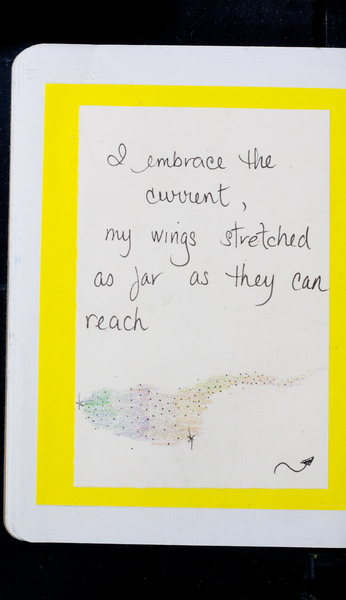 I embrace the
current,
my wings stretched
as far as they can
reach